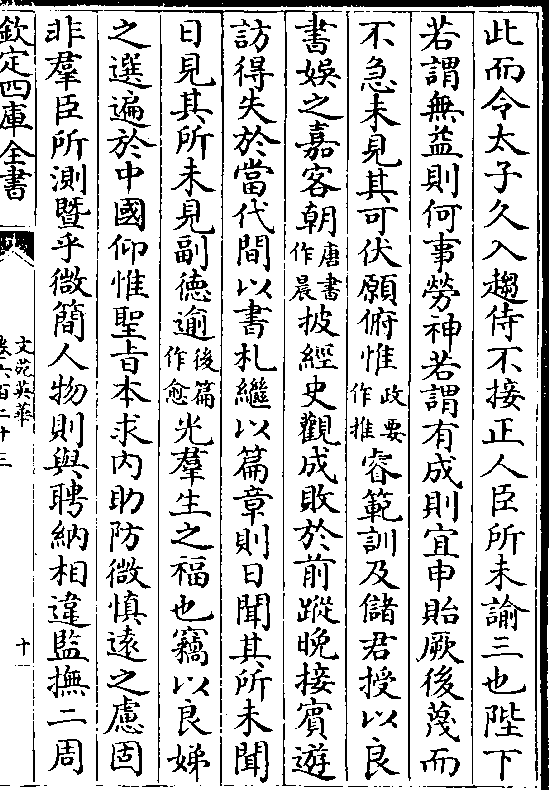 此而令太子久入趨侍不接正人臣所未諭三也陛下
若謂無益則何事勞神若謂有成則宜申貽厥後蔑而
不急未見其可伏願俯惟政要作推睿範訓及儲君授以良
書娛之嘉客朝唐書作晨披經史觀成敗於前蹤晚接賓遊
訪得失於當代間以書札繼以篇章則日聞其所未聞
日見其所未見副德逾後篇作愈光羣生之福也竊以良娣
之選遍於中國仰惟聖旨本求內助防微慎遠之慮固
非羣臣所測暨乎微簡人物則與聘納相違監撫二周
欽定四庫全書
文苑英華
卷六百二十三
十一